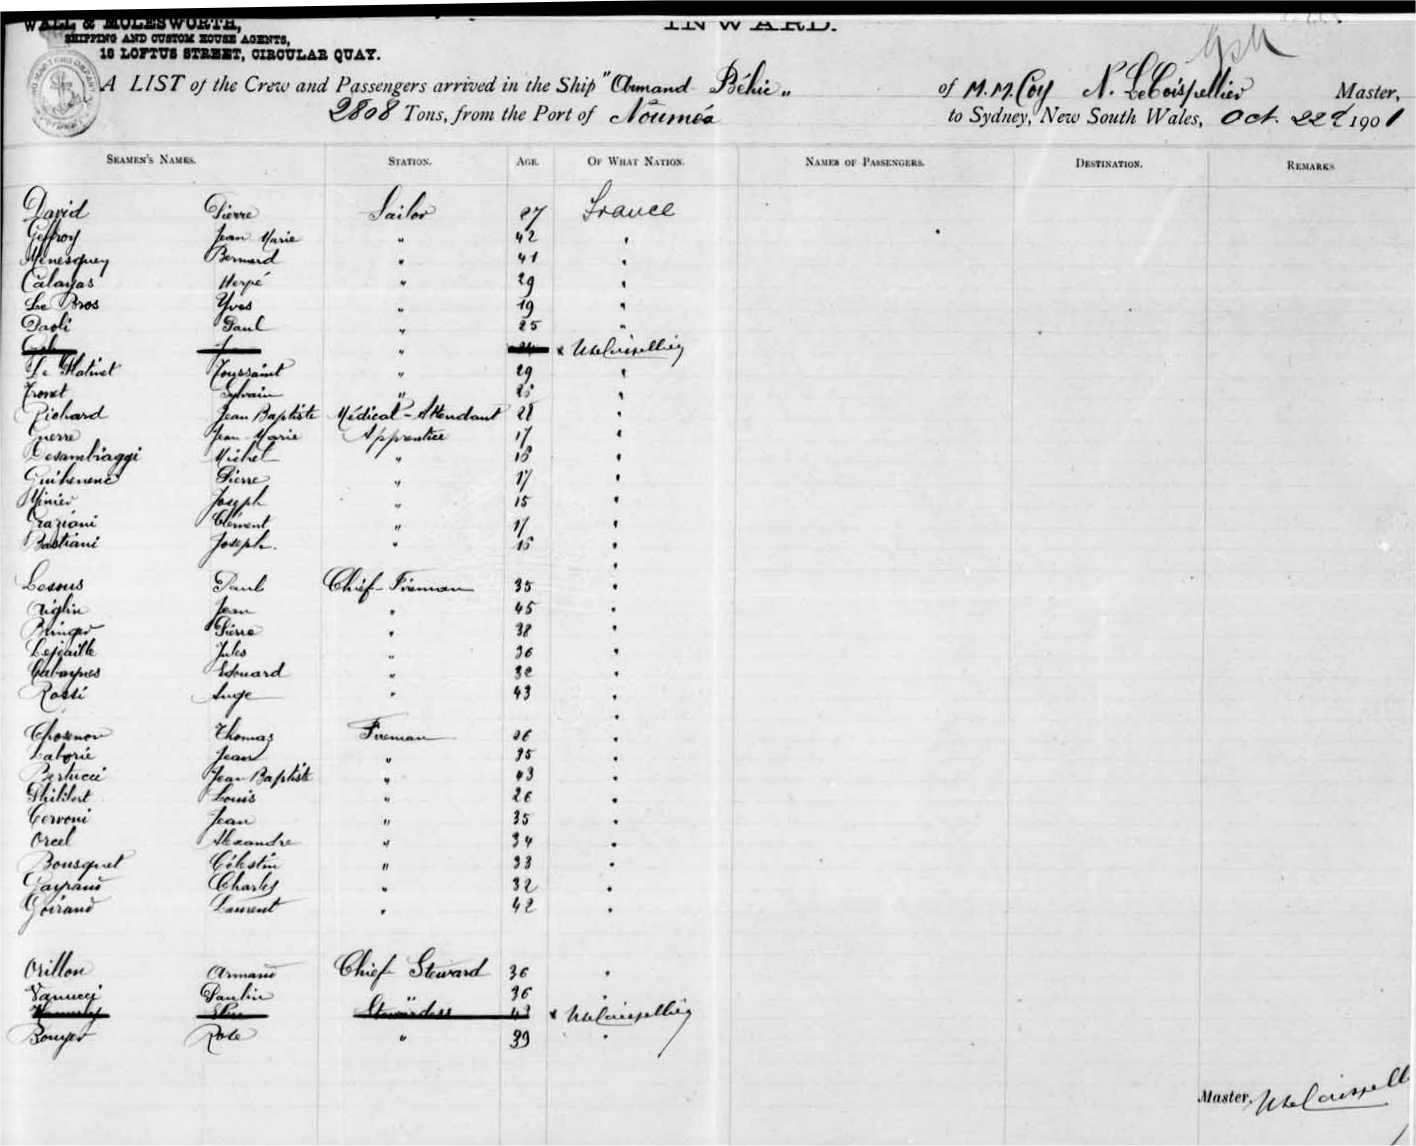 WALL & MOLESWORTH,
SHIPPING AND CUSTOM HOUSE AGENTS,
10 LOFTUS STREET, CIRCULAR QUAY.
INWARD.
A LIST of the Crew and Passengers arrived in the Ship "Armand Béhic" of M.M. Coy N. Master,
2808 Tons, from the Port of Nouméa to Sydney, New South Wales, Oct. 22d 1901
SEAMEN'S NAMES. STATION. AGE. OF WHAT NATION. NAMES OF PASSENGERS. DESTINATION. REMARKS
David Pierre Sailor 27 France
Geffroy Jean Marie " 42 "
Menesguey Bernard " 41 "
Calayas Hervé " 29 "
Le Bros Yves " 19 "
Paoli Paul " 25 "
"
Le Toussaint " 29 "
Tronet Sylvain " "
Richard Jean Baptiste Médical-Attendant 28 "
Guerre Jean-Marie Apprentice 17 "
Desambiaggi Michel " 18 "
Pierre " 17 "
Minier Joseph " 15 "
Graziani Clément " 17 "
Bastiani Joseph. " "
Paul Chief-Fireman 35 "
Jean " 45 "
Pierre " 38 "
Lejaille Jules " 36 "
Cabaynes Edouard " 32 "
Rossi Ange " 43 "
Thomas Fireman 26 "
Laborie Jean " 35 "
Bertucci Jean Baptiste " 43 "
Philibert Louis " 26 "
Cervoni Jean " 35 "
Orcel Alexandre " 34 "
Bousquet Célestin " 33 "
Gayraud Charles " 32 "
Goirand Laurent " 42 "
Orillon Armand Chief-Steward 36 "
Vanucci Paulin " 36 "
Stewardess 43
Bouyer Rose " 39 "
Master,